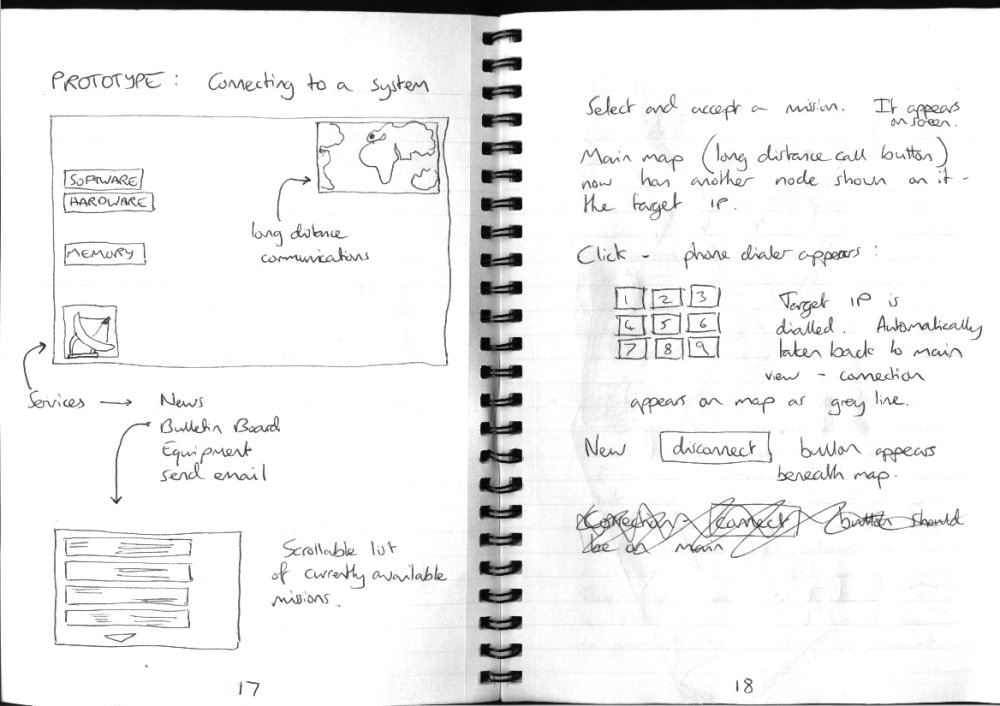 PROTOTYPE : Connecting to a system
SOFTWARE
HARDWARE
MEMORY
long distance
communications
Services → News
Bulletin Board
Equipment
send email
Scrollable list
of currently available
missions.
17
Select and accept a mission. It appears
on screen.
Main map (long distance call button)
now has another node shown on it -
the target IP.
Click - phone dialer appears :
1 2 3
4 5 6
7 8 9
Target IP is
dialled. Automatically
taken back to main
view - connection
appears on map as grey line.
New disconnect button appears
beneath map.
Correction - connect button should
be on main
18